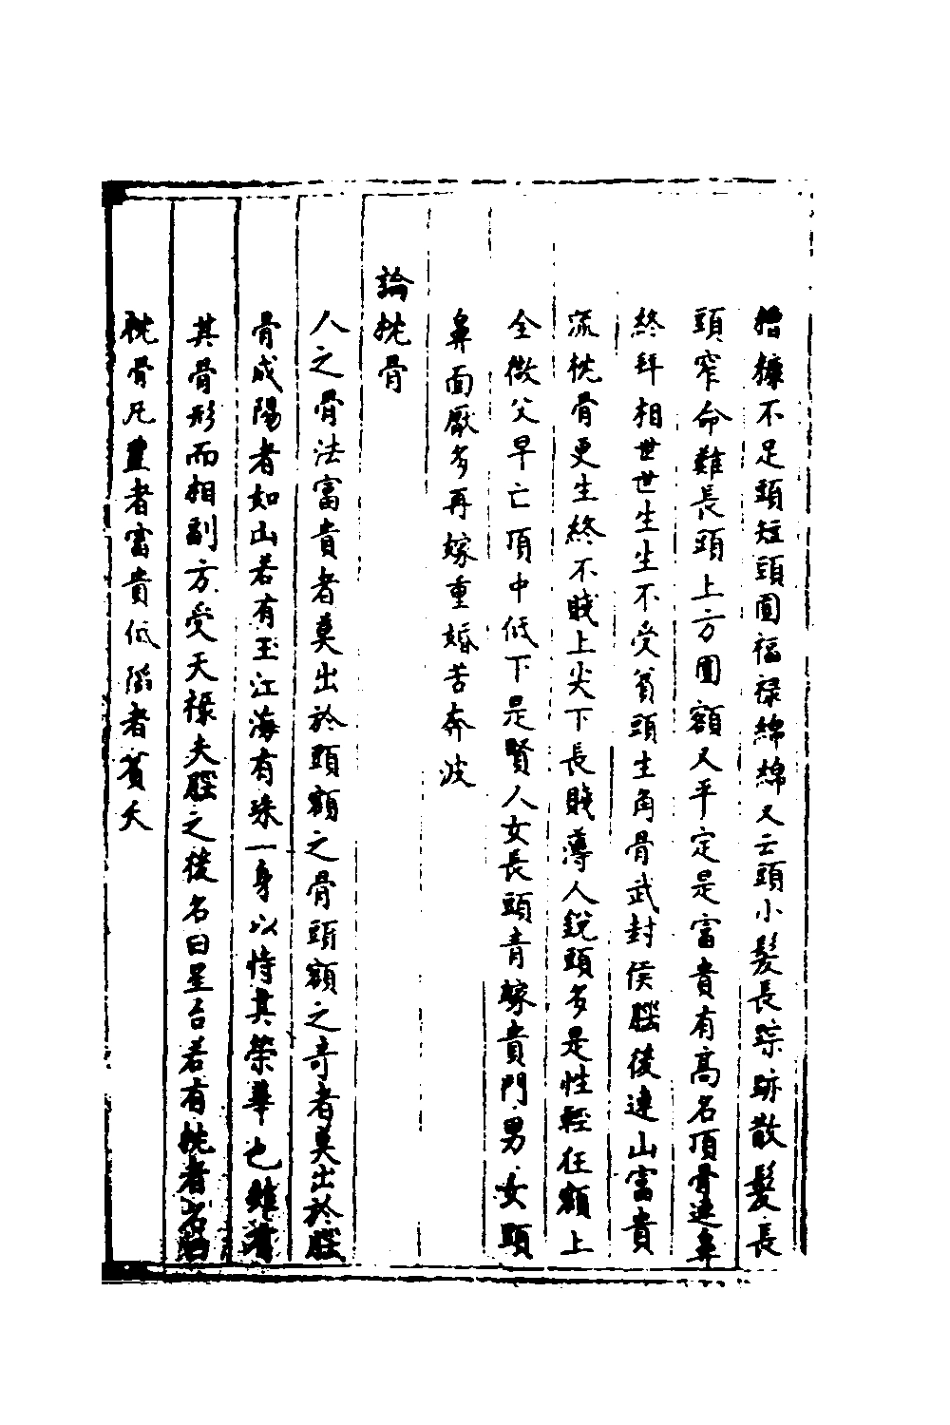 糟糠不足頭短頭圓福祿綿綿又云頭小髮長踪跡散髮長
頭窄命難長頭上方圓額又平定是富貴有高名頂骨連鼻
終拜相世世生生不受貧頭生角骨武封侯腦後連山富貴
流枕骨更生終不賤上尖下長賤薄人銳頭多是性輕狂額上
全微父早亡頂中低下是賢人女長頭青嫁貴門男女頭
鼻面厭多再嫁重婚苦奔波
論枕骨
人之骨法富貴者莫出於頭額之骨頭額之奇者莫出於腦
骨成陽者如山若有玉江海有珠一身以恃其榮華也雖有
其骨形而相副方受天祿夫腦之後名曰星台若有枕者名
枕骨凡豐者富貴低陷者貧夭